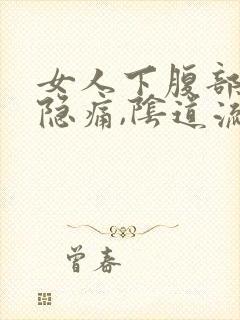 女人下腹部
隐痛,陰道流
曾春